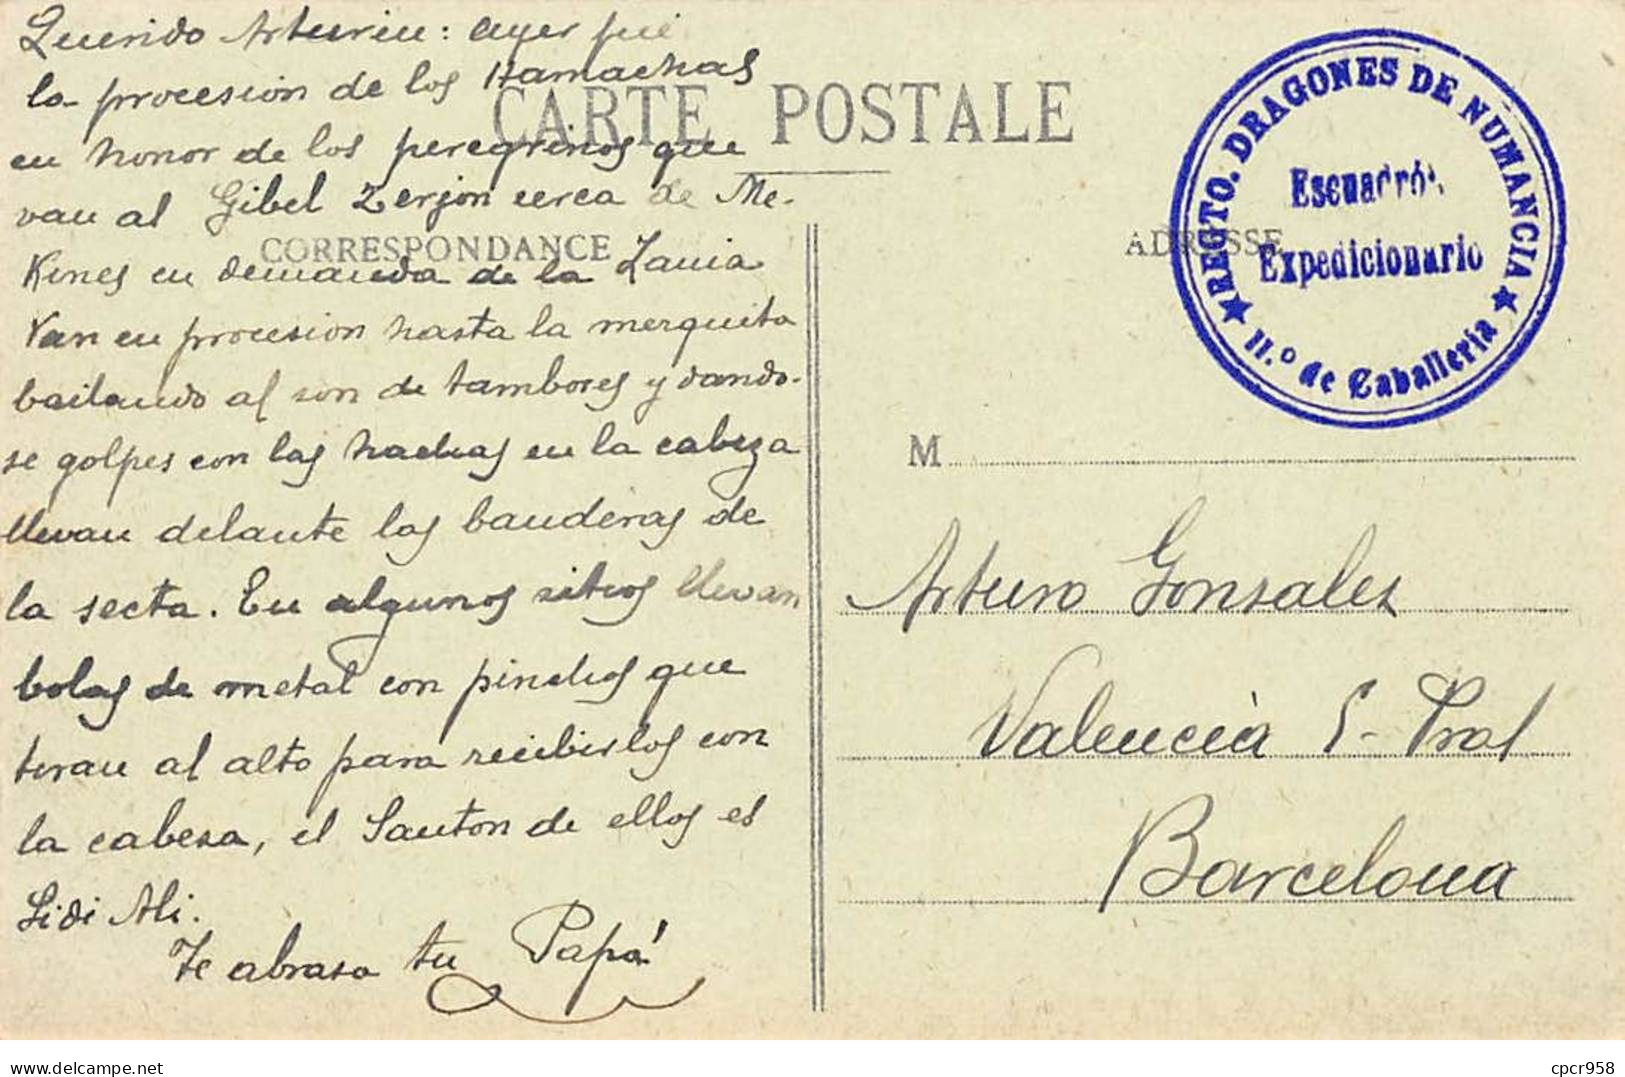 Querido Arturin: ayer fué
la procesion de los Hamachas
en honor de los peregrinos que
van al Gibel Zerjon cerca de Me-
Kines en demanda de la Zauia
Van en procesion hasta la merquita
bailando al son de tambores y dando-
se golpes con las hachas en la cabeza
llevan delante las banderas de
la secta. En algunos sitios llevan
bolas de metal con pinchos que
tiran al alto para recibirlos con
la cabesa, el Santon de ellos es
Sidi Ali.
Te abrasa tu Papá
CARTE POSTALE
CORRESPONDANCE
ADRESSE
REGTO. DRAGONES DE NUMANCIA
Escuadrón
Expedicionario
11.º de Caballeria
M
Arturo Gonsales
Valencia 5- Pral
Barcelona
cpcr958
delcampe.net